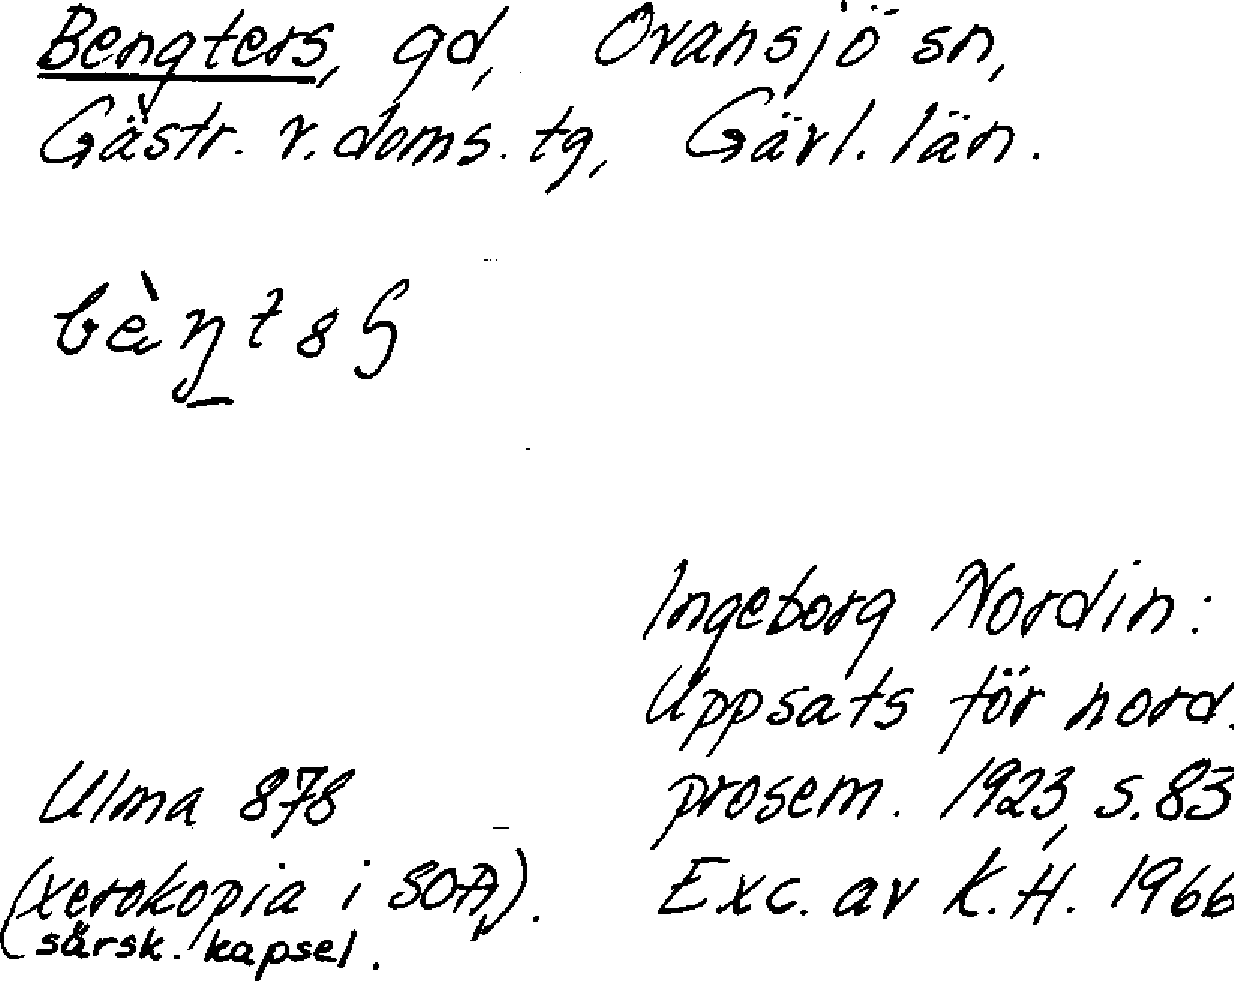 Bengters, gd, Ovansjö sn,
Gästr. v. doms. tg, Gävl. län.
Ingeborg Nordin:
Uppsats för nord.
prosem. 1923, s. 83
Exc. av K.H. 1966
Ulma 878
(xerokopia i SOA,).
särsk. kapsel.